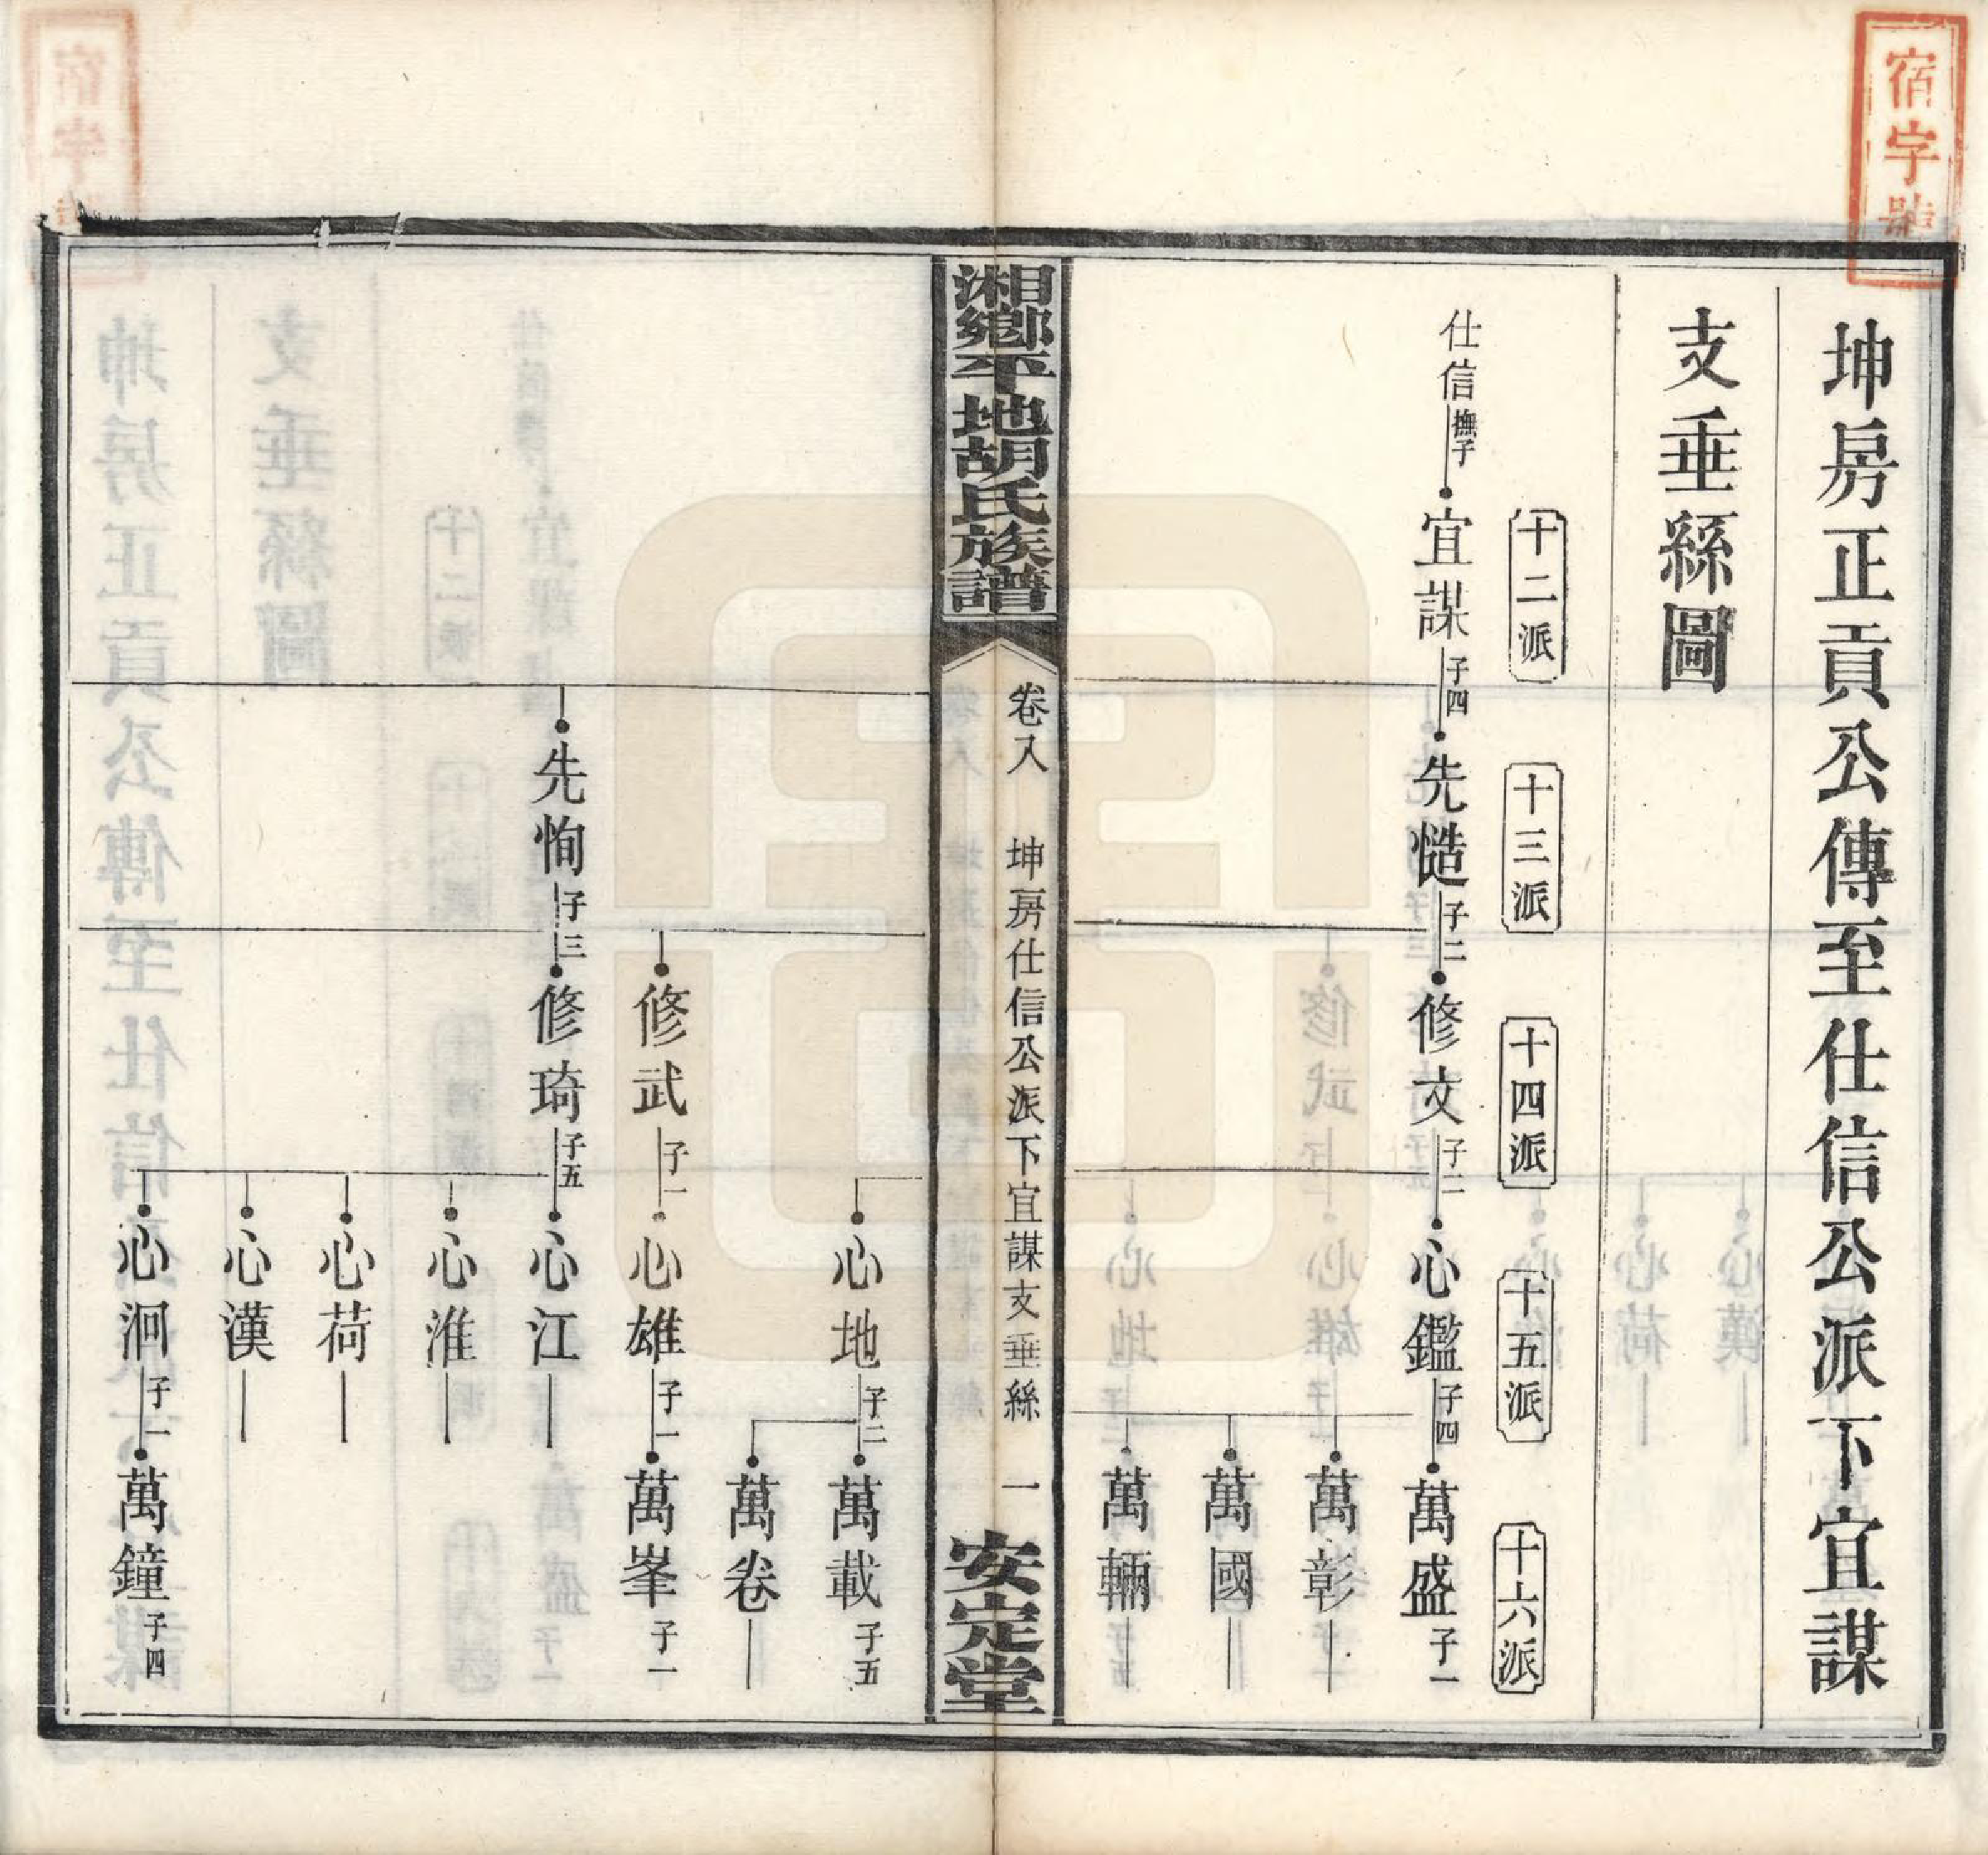 宿字號
坤房正貢公傳至仕信公派下宜謀
支垂絲圖
十二派
十三派
十四派
十五派
十六派
仕信 撫子 宜謀 子四 先慥 子二 修文 子二 心鑑 子四 萬盛 子一
萬彰
萬國
萬輛
湘鄉平地胡氏族譜
卷八 坤房仕信公派下宜謀支垂絲 一
安定堂
心地 子二 萬載 子五
萬卷
修武 子一 心雄 子一 萬峯 子一
先恂 子三 修琦 子五 心江
心淮
心荷
心漢
心泂 子一 萬鐘 子四